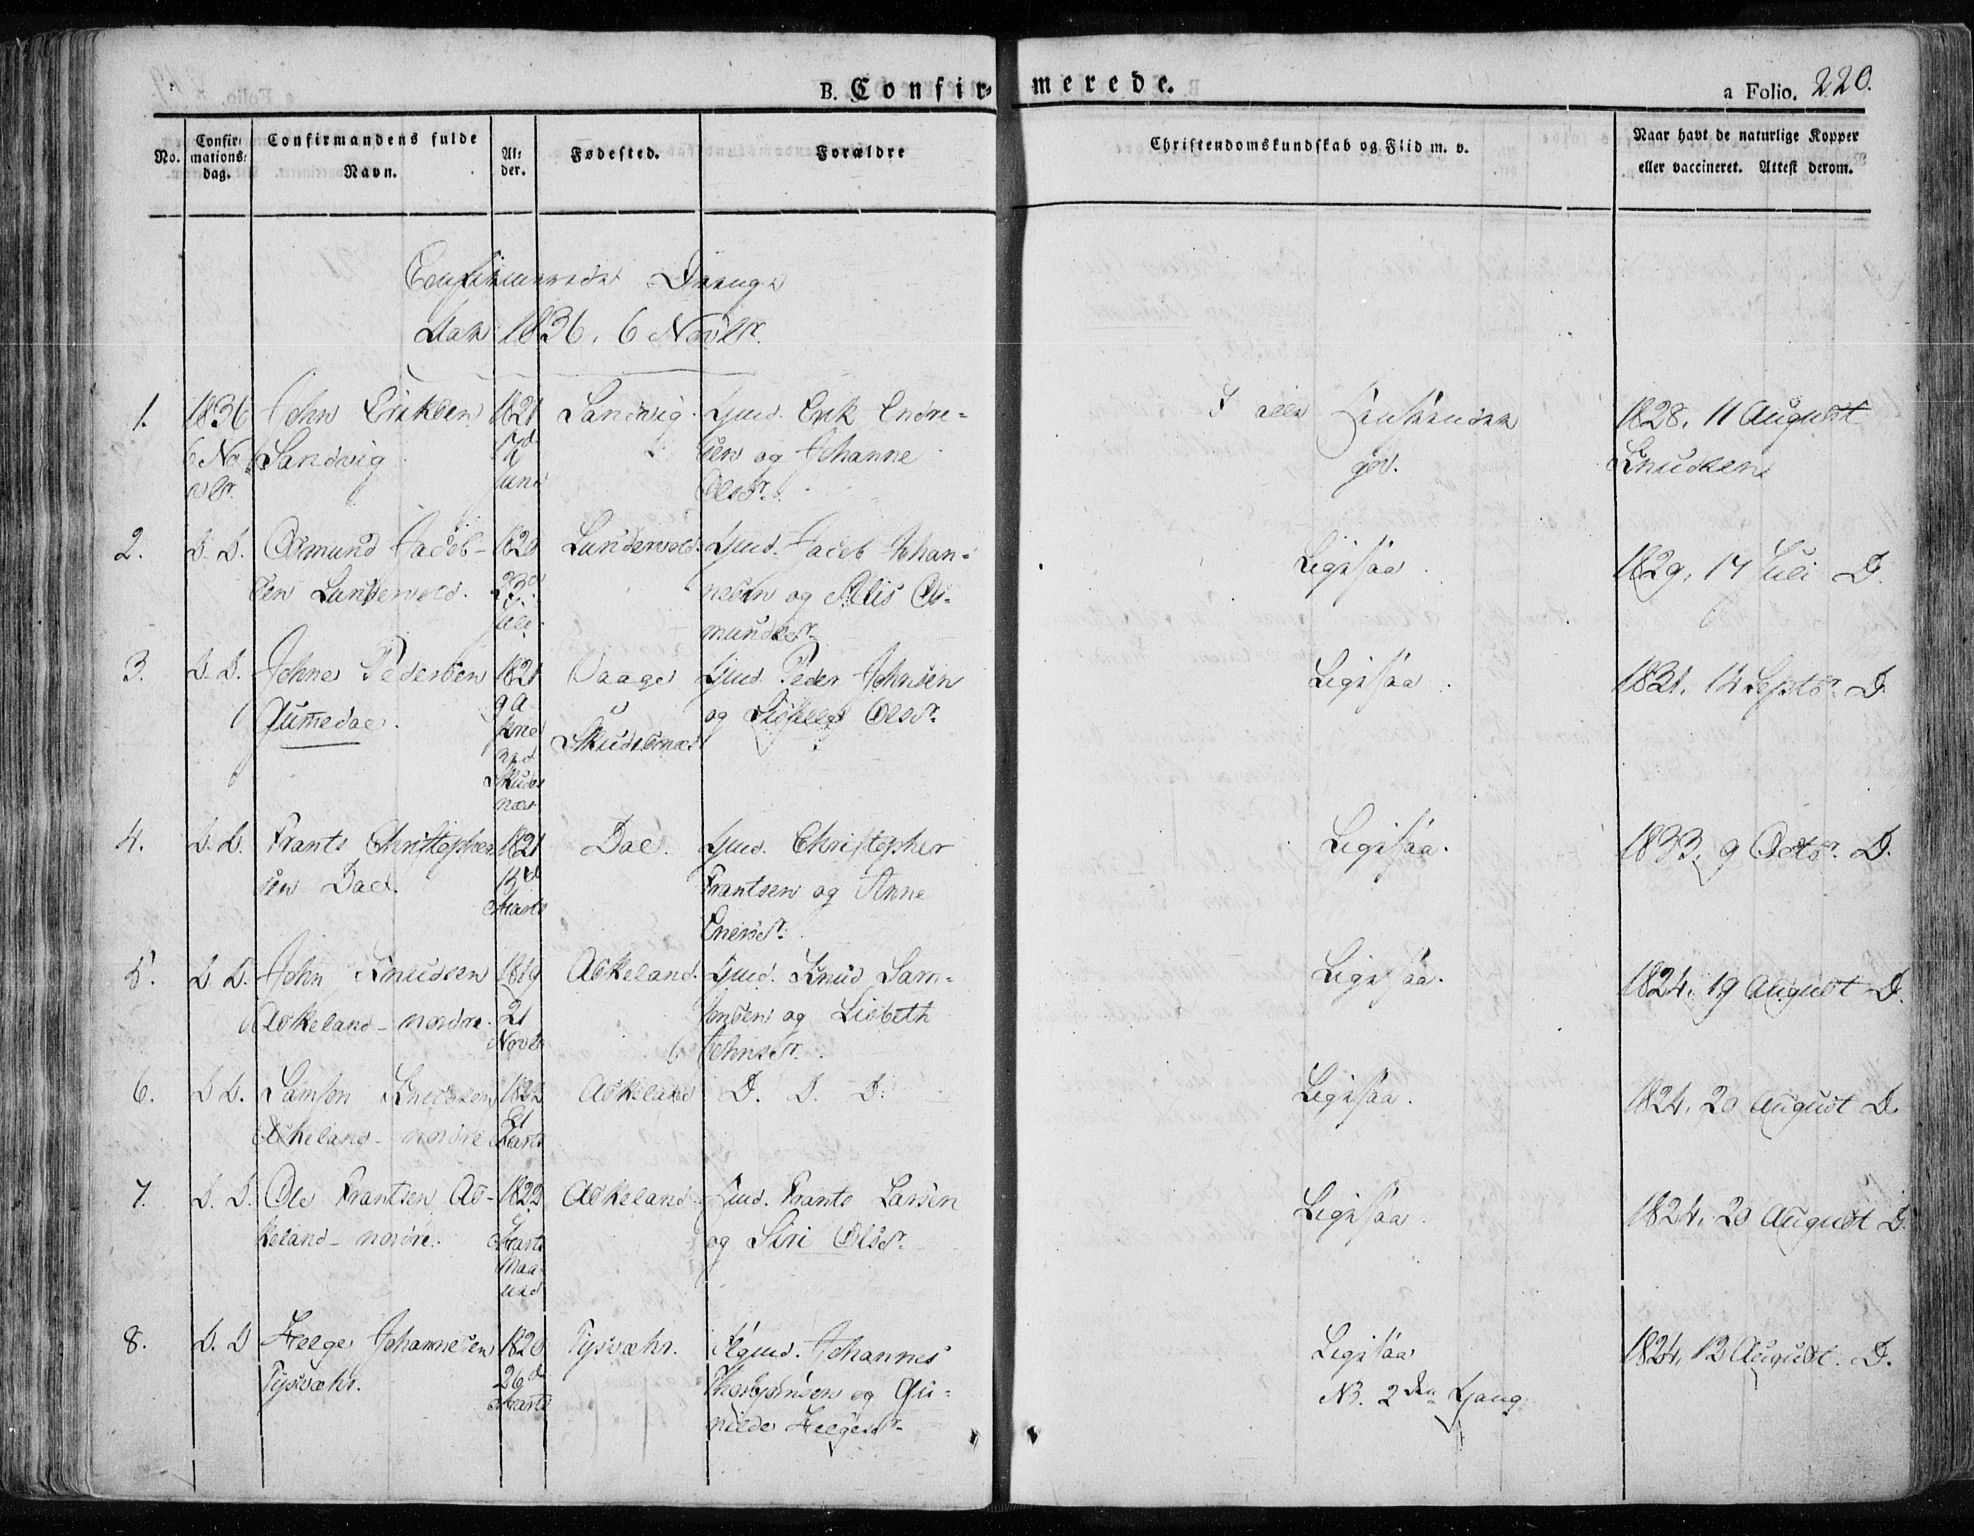 B. Confir=
merede.
a Folio. 220.
No.
Confir=
mations=
dag.
Confirmandens fulde
Navn.
Al=
der.
Fødested.
Forældre
Christendomskundskab og Flid m. v.
Naar havt de naturlige Kopper
eller vaccineret. Attest derom.
Confirmerede Drenge
1836, 6 Novbr.
1.
1836
6 No
vbr.
John Eriksen
Sandvig
1821
Juni
Sandvig
Gmd. Erik Endre-
sen og Johanne
Olsdr.
I alle Henseender
god.
1828, 11 August
Knudsen
2.
D. D.
Osmund Jacob-
sen Lundervold.
1820
23d
Juli
Lundervold.
Gmd. Jacob Johan-
nesen og Alis Os-
mundsdr.
Ligesaa
1829, 17 Juli D.
3.
D. D.
Johnes Pedersen
Qummedal.
1821
Vaage
Skudesnæs
Gmd. Peder Johnsen
og Olsdr.
Ligesaa
1831, 14 Septbr. D.
4.
D. D.
Frants Christopher
sen Dael.
1821
Marts
Dael.
Gmd. Christopher
Frantsen og Anne
Enersdr.
Ligesaa.
1833, 9 Octbr. D.
5.
D. D.
John Knudsen
Askeland nordre.
1819
21
Novbr
Askeland.
Gmd. Knud Sam-
sonsen og Lisbeth
Johnsdr.
Ligesaa.
1824, 19 August D.
6.
D D.
Samson Knudsen
Askeland nordre
1822
Marts
Askeland
D. D. D.
Ligesaa.
1824, 20 August D.
7.
D. D.
Ole Frantsen As-
keland nordre.
1822
Marts
Maa
ned
Askeland
Gmd. Frants Larsen
og Siri Olsdr.
Ligesaa
1824, 20 August D.
8.
D. D
Helge Johannesen
Tysvæhr.
1820
26d
Marts
Tysvæhr.
Johannes
Thorbjørnsen og Gu-
nilde Helgesdr.
Ligesaa
NB. 2den Gang
1824, 12 August. D.